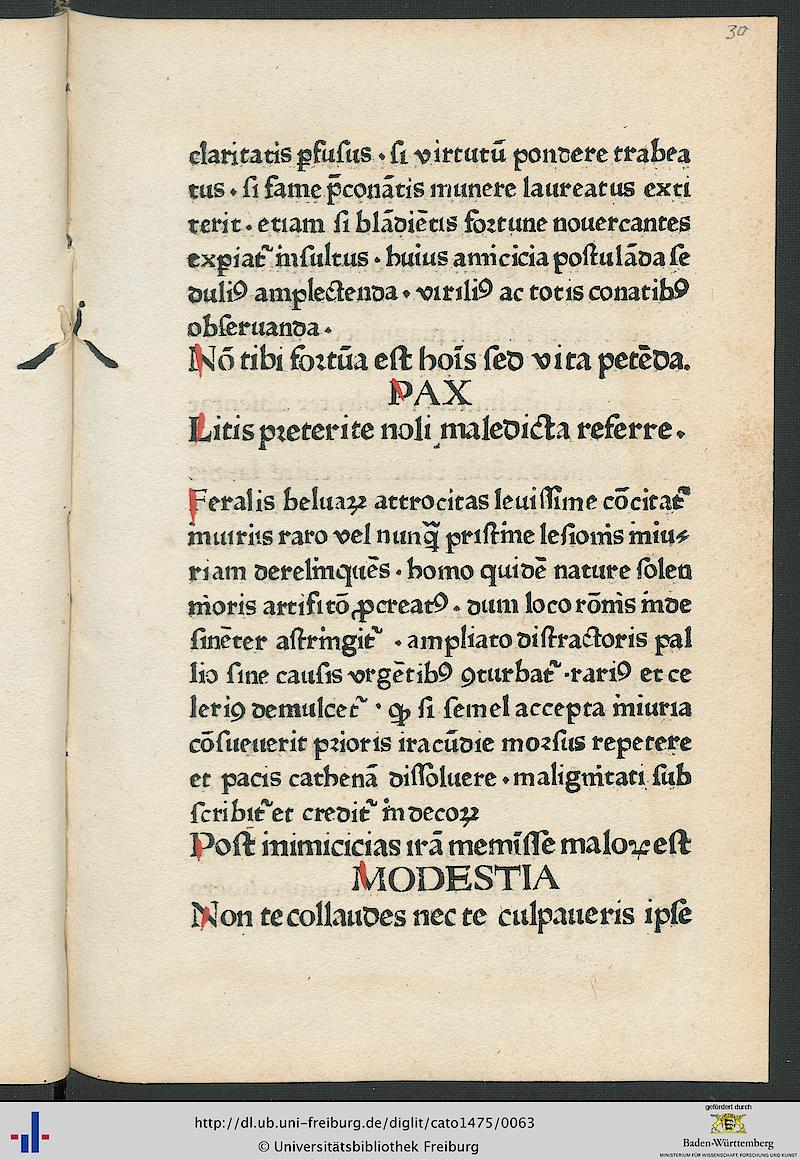 30
claritatis ꝑfusus . si virtutū pondere trabea
tus . si fame p̄conātis munere laureatus exti
terit . etiam si blādiētis fortune nouercantes
expiat᷑ insultus . huius amicicia postulāda se
duliꝰ amplectenda . viriliꝰ ac totis conatibꝰ
obseruanda .
Nō tibi fortūa est hoīs sed vita petēda.
PAX
Litis preterite noli maledicta referre .
Feralis beluaꝝ attrocitas leuissime cōcitat᷑
iniuriis raro vel nunq̄ pristine lesionis iniu⸗
riam derelinquēs . homo quidē nature solen
nioris artifitō ꝓcreatꝰ . dum loco rōnis inde
sinēter astringit᷑ . ampliato distractoris pal
lio sine causis vrgētibꝰ ꝯturbat᷑ . rariꝰ et ce
leriꝰ demulcet᷑ . ꝙ si semel accepta iniuria
cōsueuerit prioris iracūdie morsus repetere
et pacis cathenā dissoluere . malignitati sub
scribit᷑ et credit᷑ indecoꝝ
Post inimicicias irā meminisse maloꝝ est
MODESTIA
Non te collaudes nec te culpaueris ipse
http://dl.ub.uni-freiburg.de/diglit/cato1475/0063
© Universitätsbibliothek Freiburg
gefördert durch
Baden-Württemberg
MINISTERIUM FÜR WISSENSCHAFT, FORSCHUNG UND KUNST